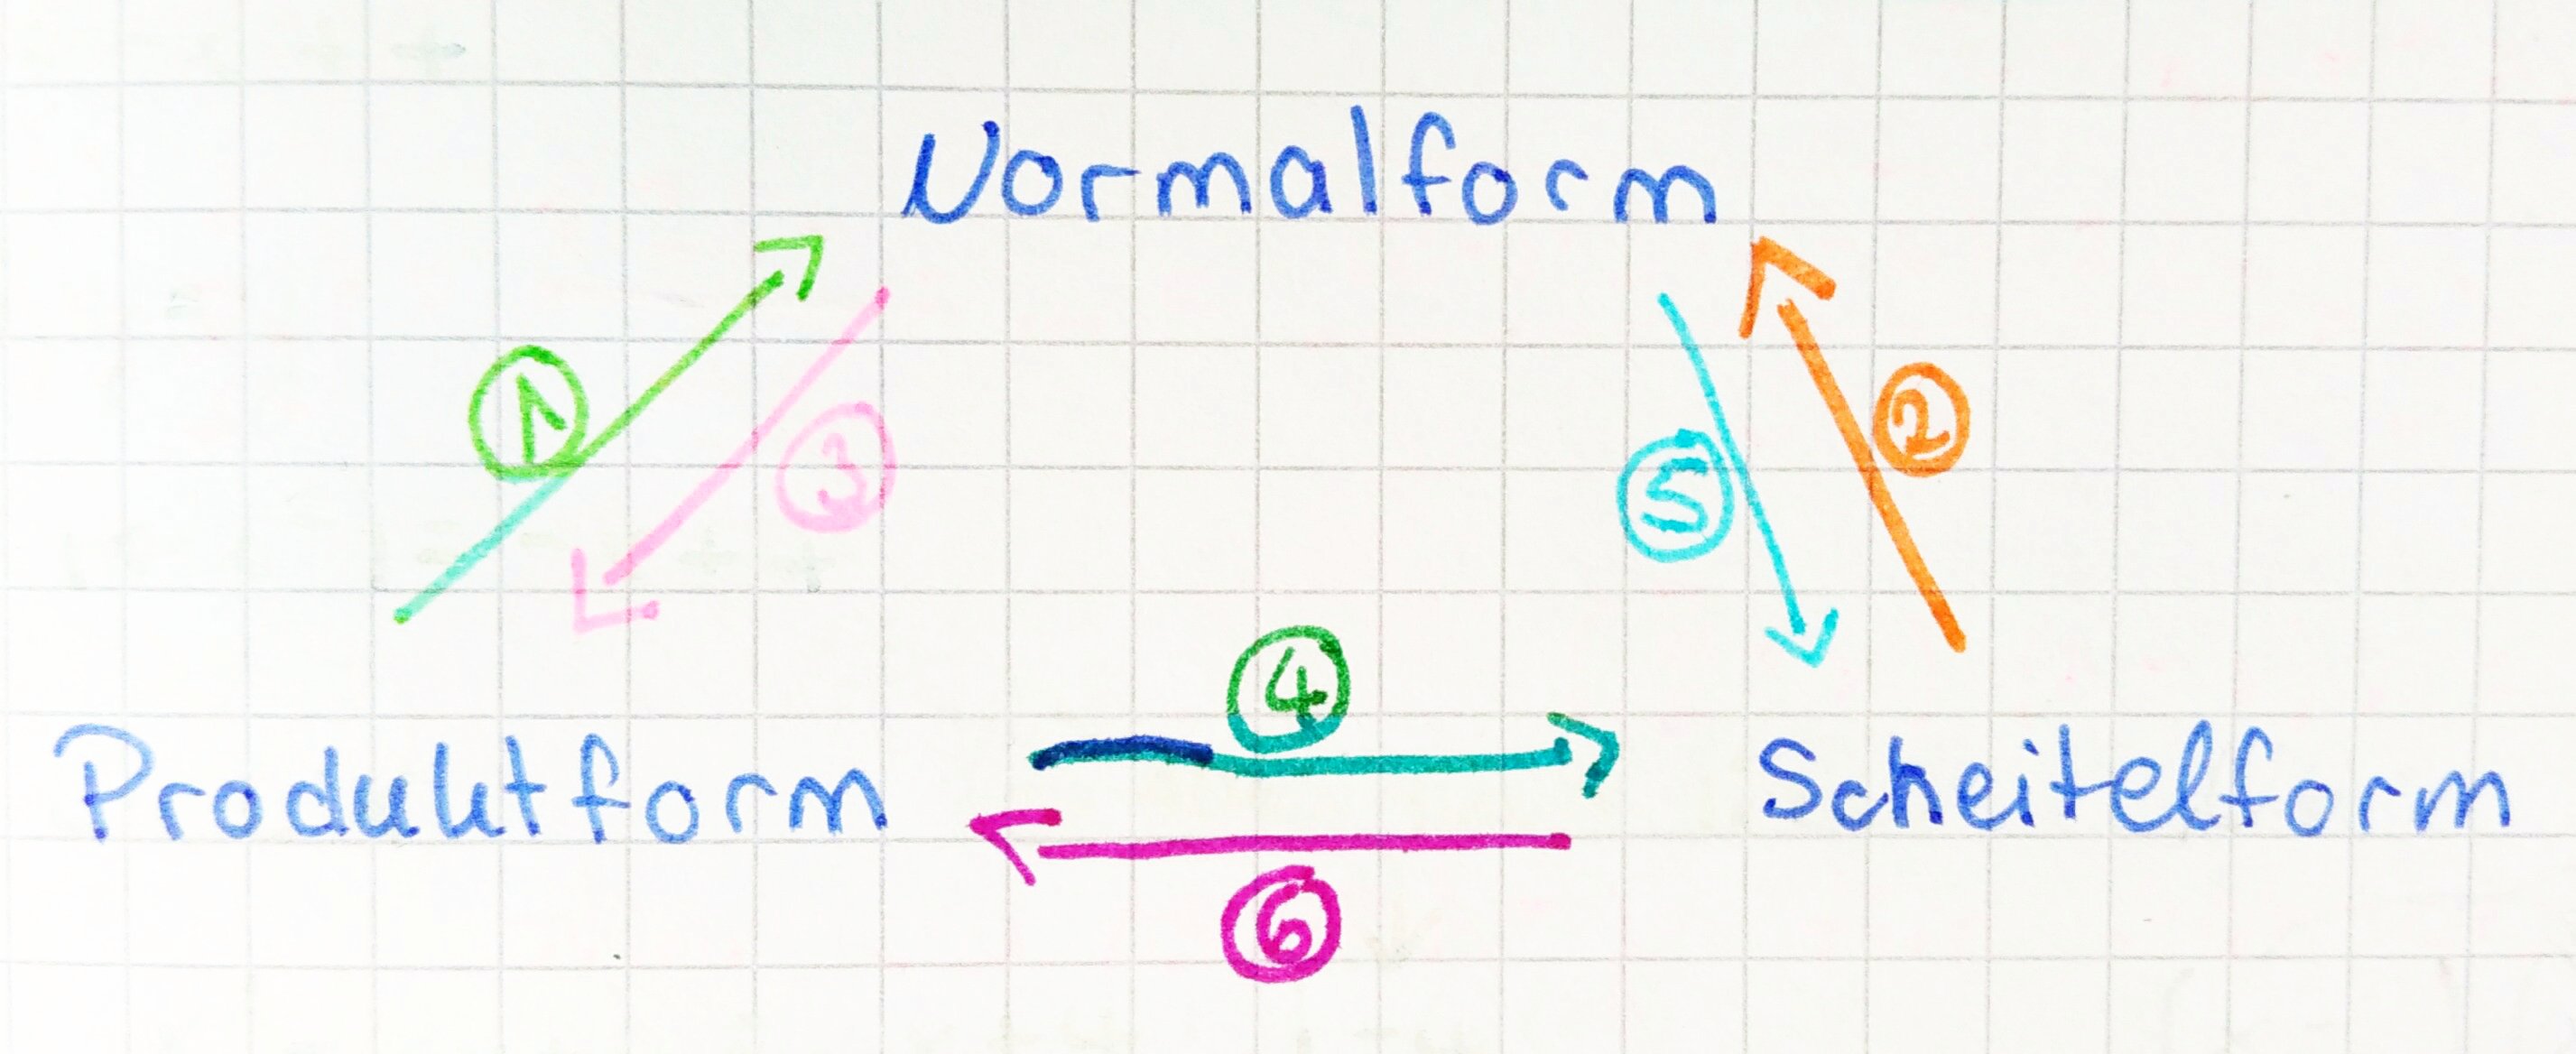 Normalform
1
3
5
2
4
Produktform
Scheitelform
6